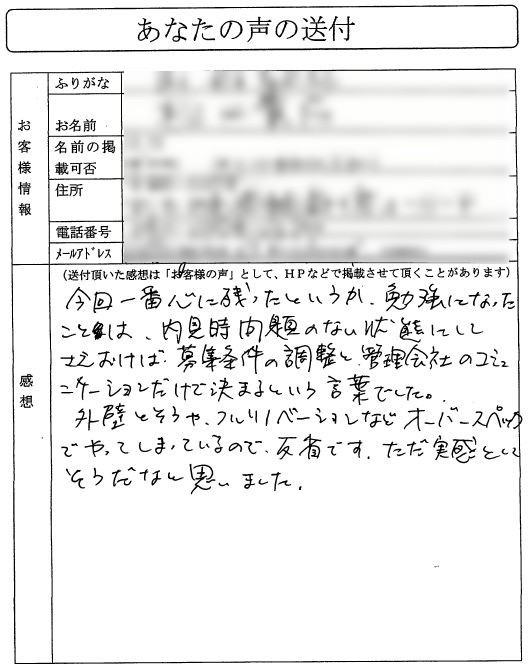 あなたの声の送付
お客様情報
ふりがな
お名前
名前の掲
載可否
住所
電話番号
メールアドレス
感想
（送付頂いた感想は「お客様の声」として、HPなどで掲載させて頂くことがあります）
今回一番心に残ったというか、勉強になった
ことは、内見時問題のない状態にして
さえおけば募集条件の調整と管理会社のコミュ
ニケーションだけで決まるという言葉でした。
外壁とそうや、フルリノベーションなどオーバースペック
でやってしまっているので、反省です。ただ実感として
そうだなと思いました。